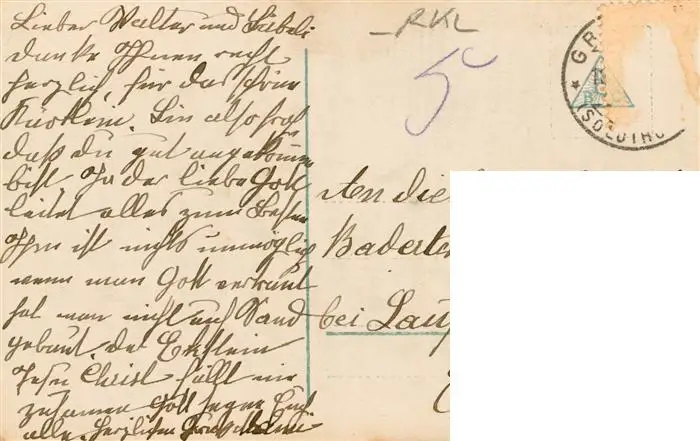 Lieber Walter und Liebeli
danke Ihnen recht
herzlich, für das schöne
Kärtlein. Bin also froh
daß du gut angekomen
bist. Ja der liebe Gott
leitet alles zum Besten
Ihm ist nichts unmöglich
wenn man Gott vertraut
hat man nicht auf Sand
gebaut. der Ekstein
Jesu Christ fällt nie
zusamen Gott segne Euch
alle. Herzlichen Gruß
RKL
5c
GR
(SOLOTHU
An die
Badert
bei Lauf